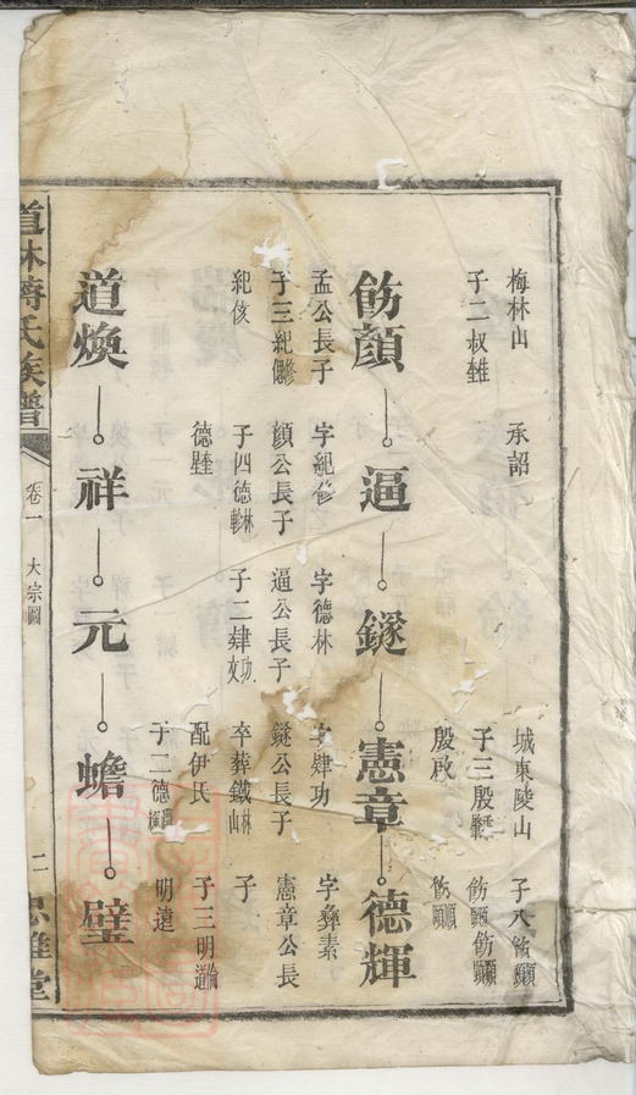 梅林山
子二叔
承詔
城東陵山
子三殷
殷啟
子八
飭顏
逼
鐩
憲章
德輝
孟公長子
子三紀
紀侅
字紀修
顏公長子
子四德
德
字德林
逼公長子
子二肄
字肄功
鐩公長子
卒葬鐵林山
配伊氏
子二德
字彝素
憲章公長
子
子三明
明遠
道煥
祥
元
蟾
璧
道林蔣氏族譜
卷一
大宗圖
二
忠雅堂